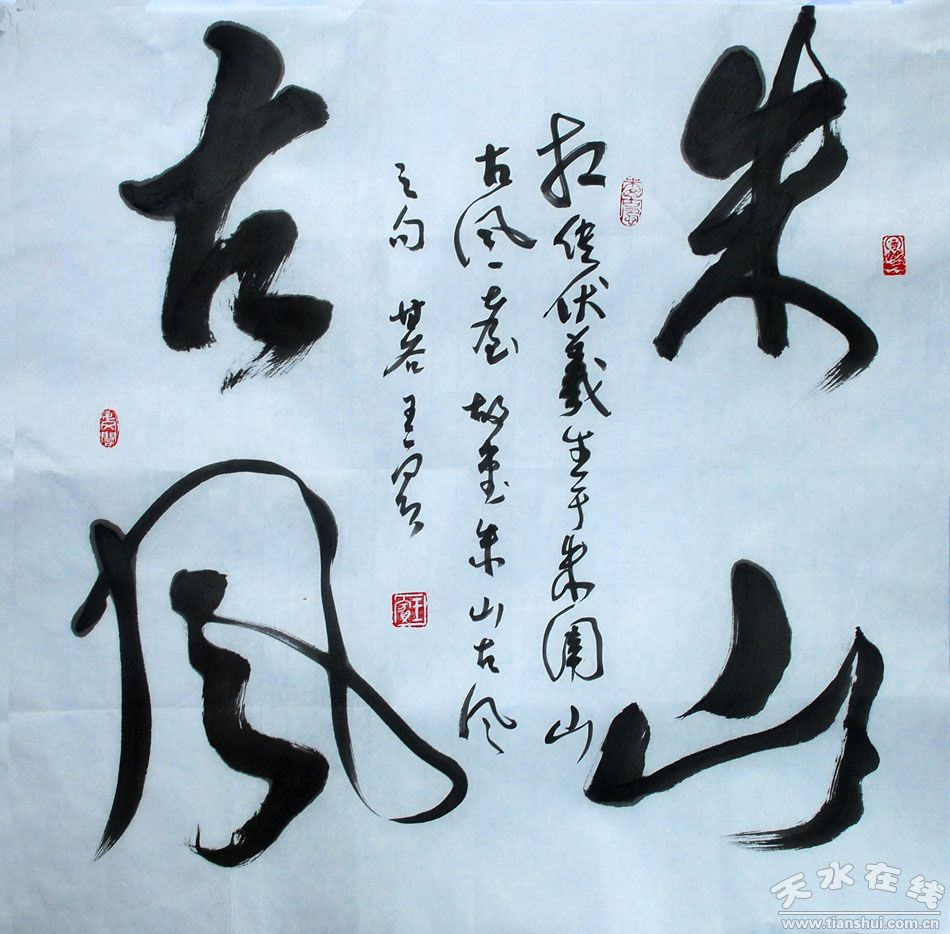 朱山
古風
相传伏羲生于朱圉山
古风臺故書朱山古风
之句 甘谷 王
天水在线
www.tianshui.com.cn